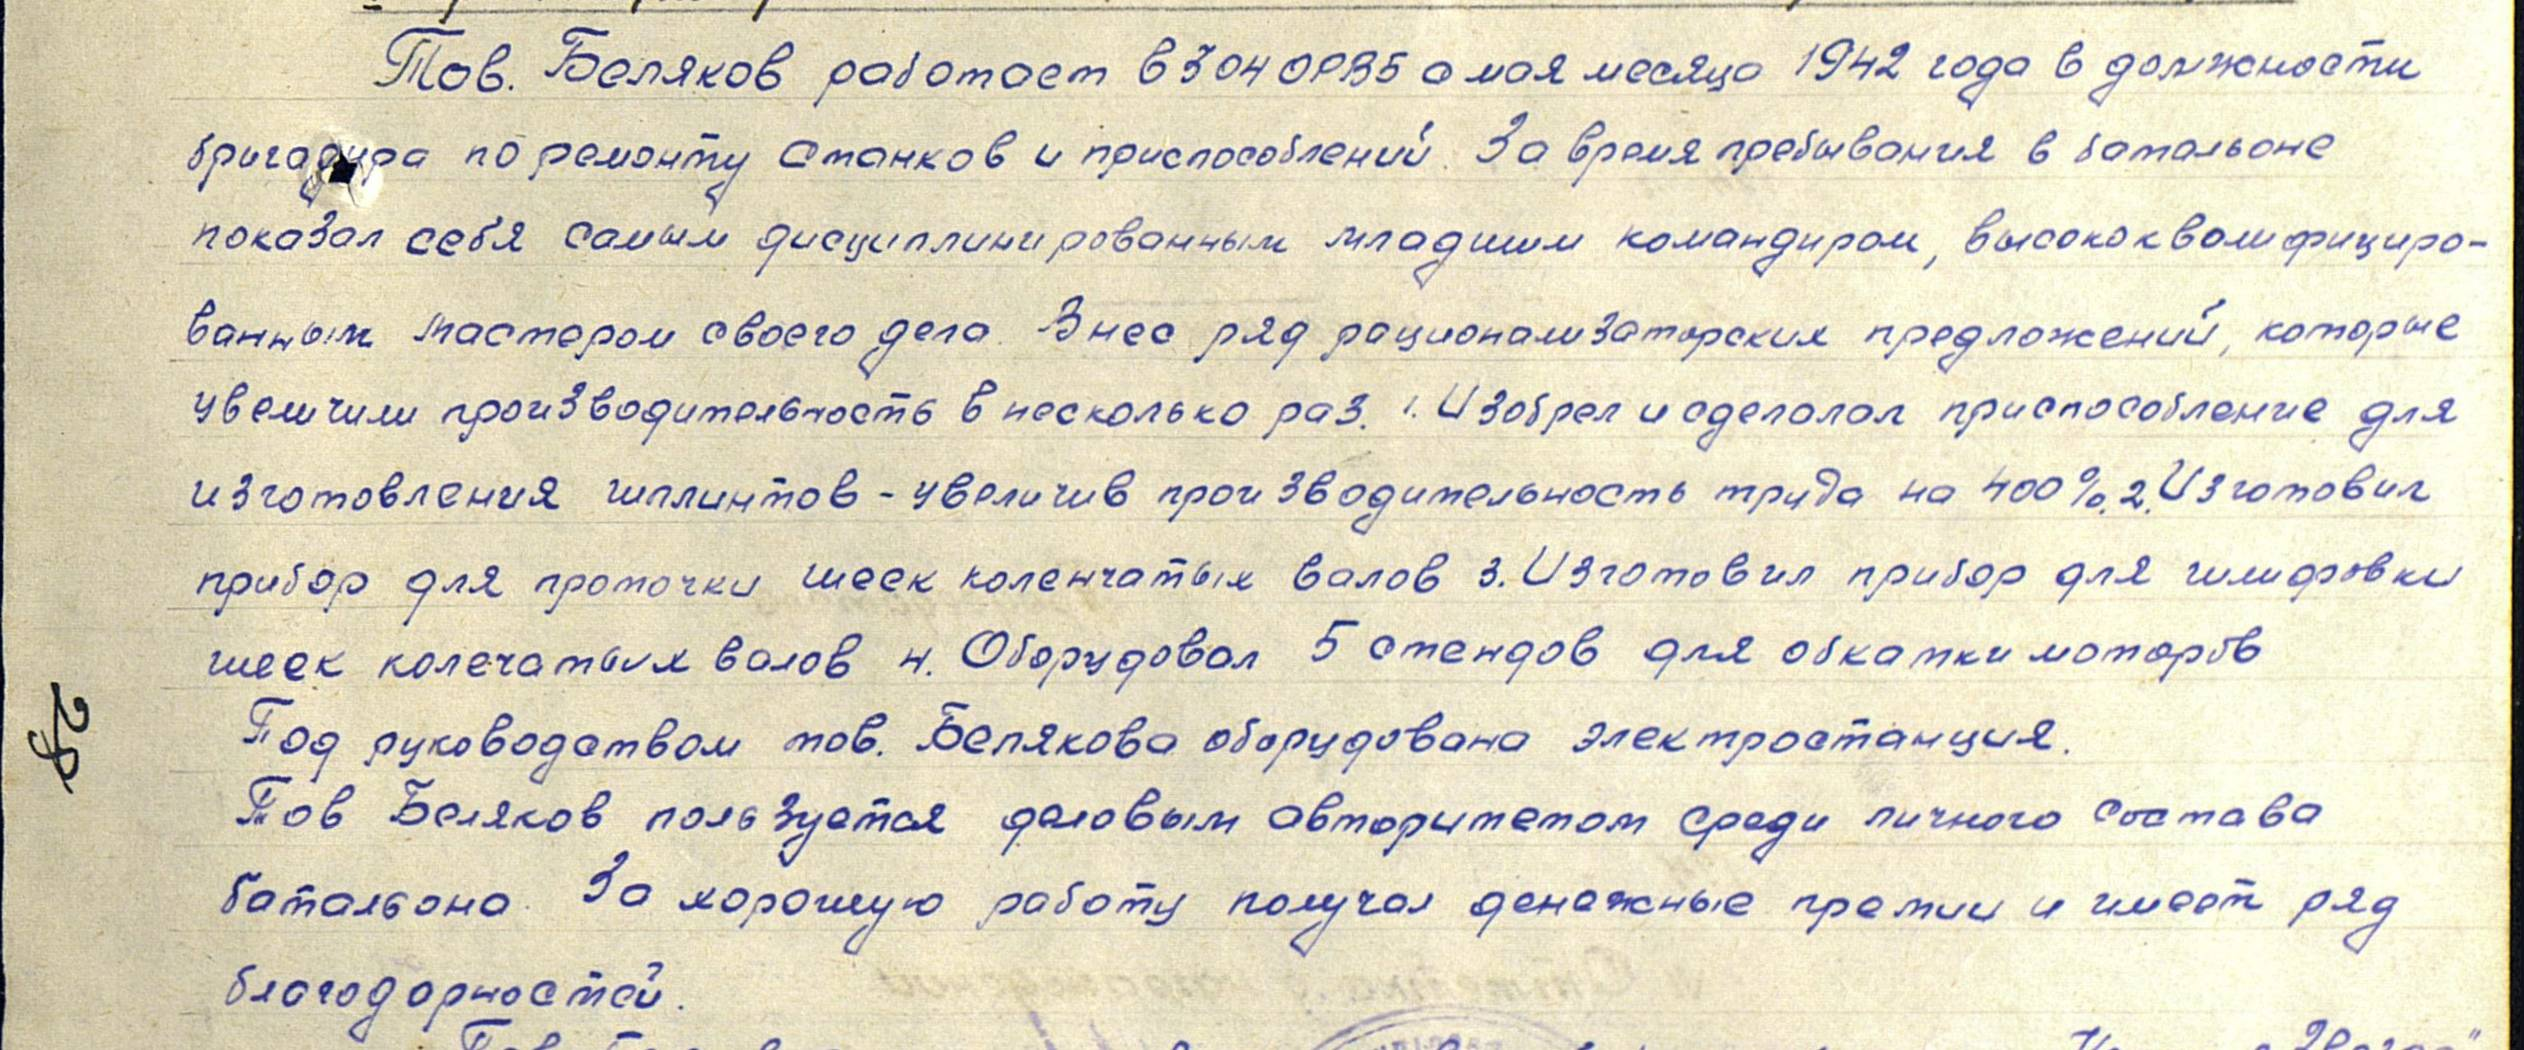 Тов. Беляков работает в 304 ОРВБ с мая месяца 1942 года в должности
бригадира по ремонту станков и приспособлений. За время пребывания в батальоне
показал себя самым дисциплинированным младшим командиром, высококвалифициро-
ванным мастером своего дела. Внес ряд рационализаторских предложений, которые
увеличили производительность в несколько раз. 1. Изобрел и сделолал приспособление для
изготовления шплинтов - увеличив производительность труда на 400%. 2. Изготовил
прибор для проточки шеек коленчатых валов 3. Изготовил прибор для шлифовки
шеек колечатых валов 4. Оборудовал 5 стендов для обкатки моторов
Под руководством тов. Белякова оборудована электростанция.
Тов Беляков пользуется деловым авторитетом среди личного состава
батальона. За хорошую работу получал денежные премии и имеет ряд
благодарностей.
28